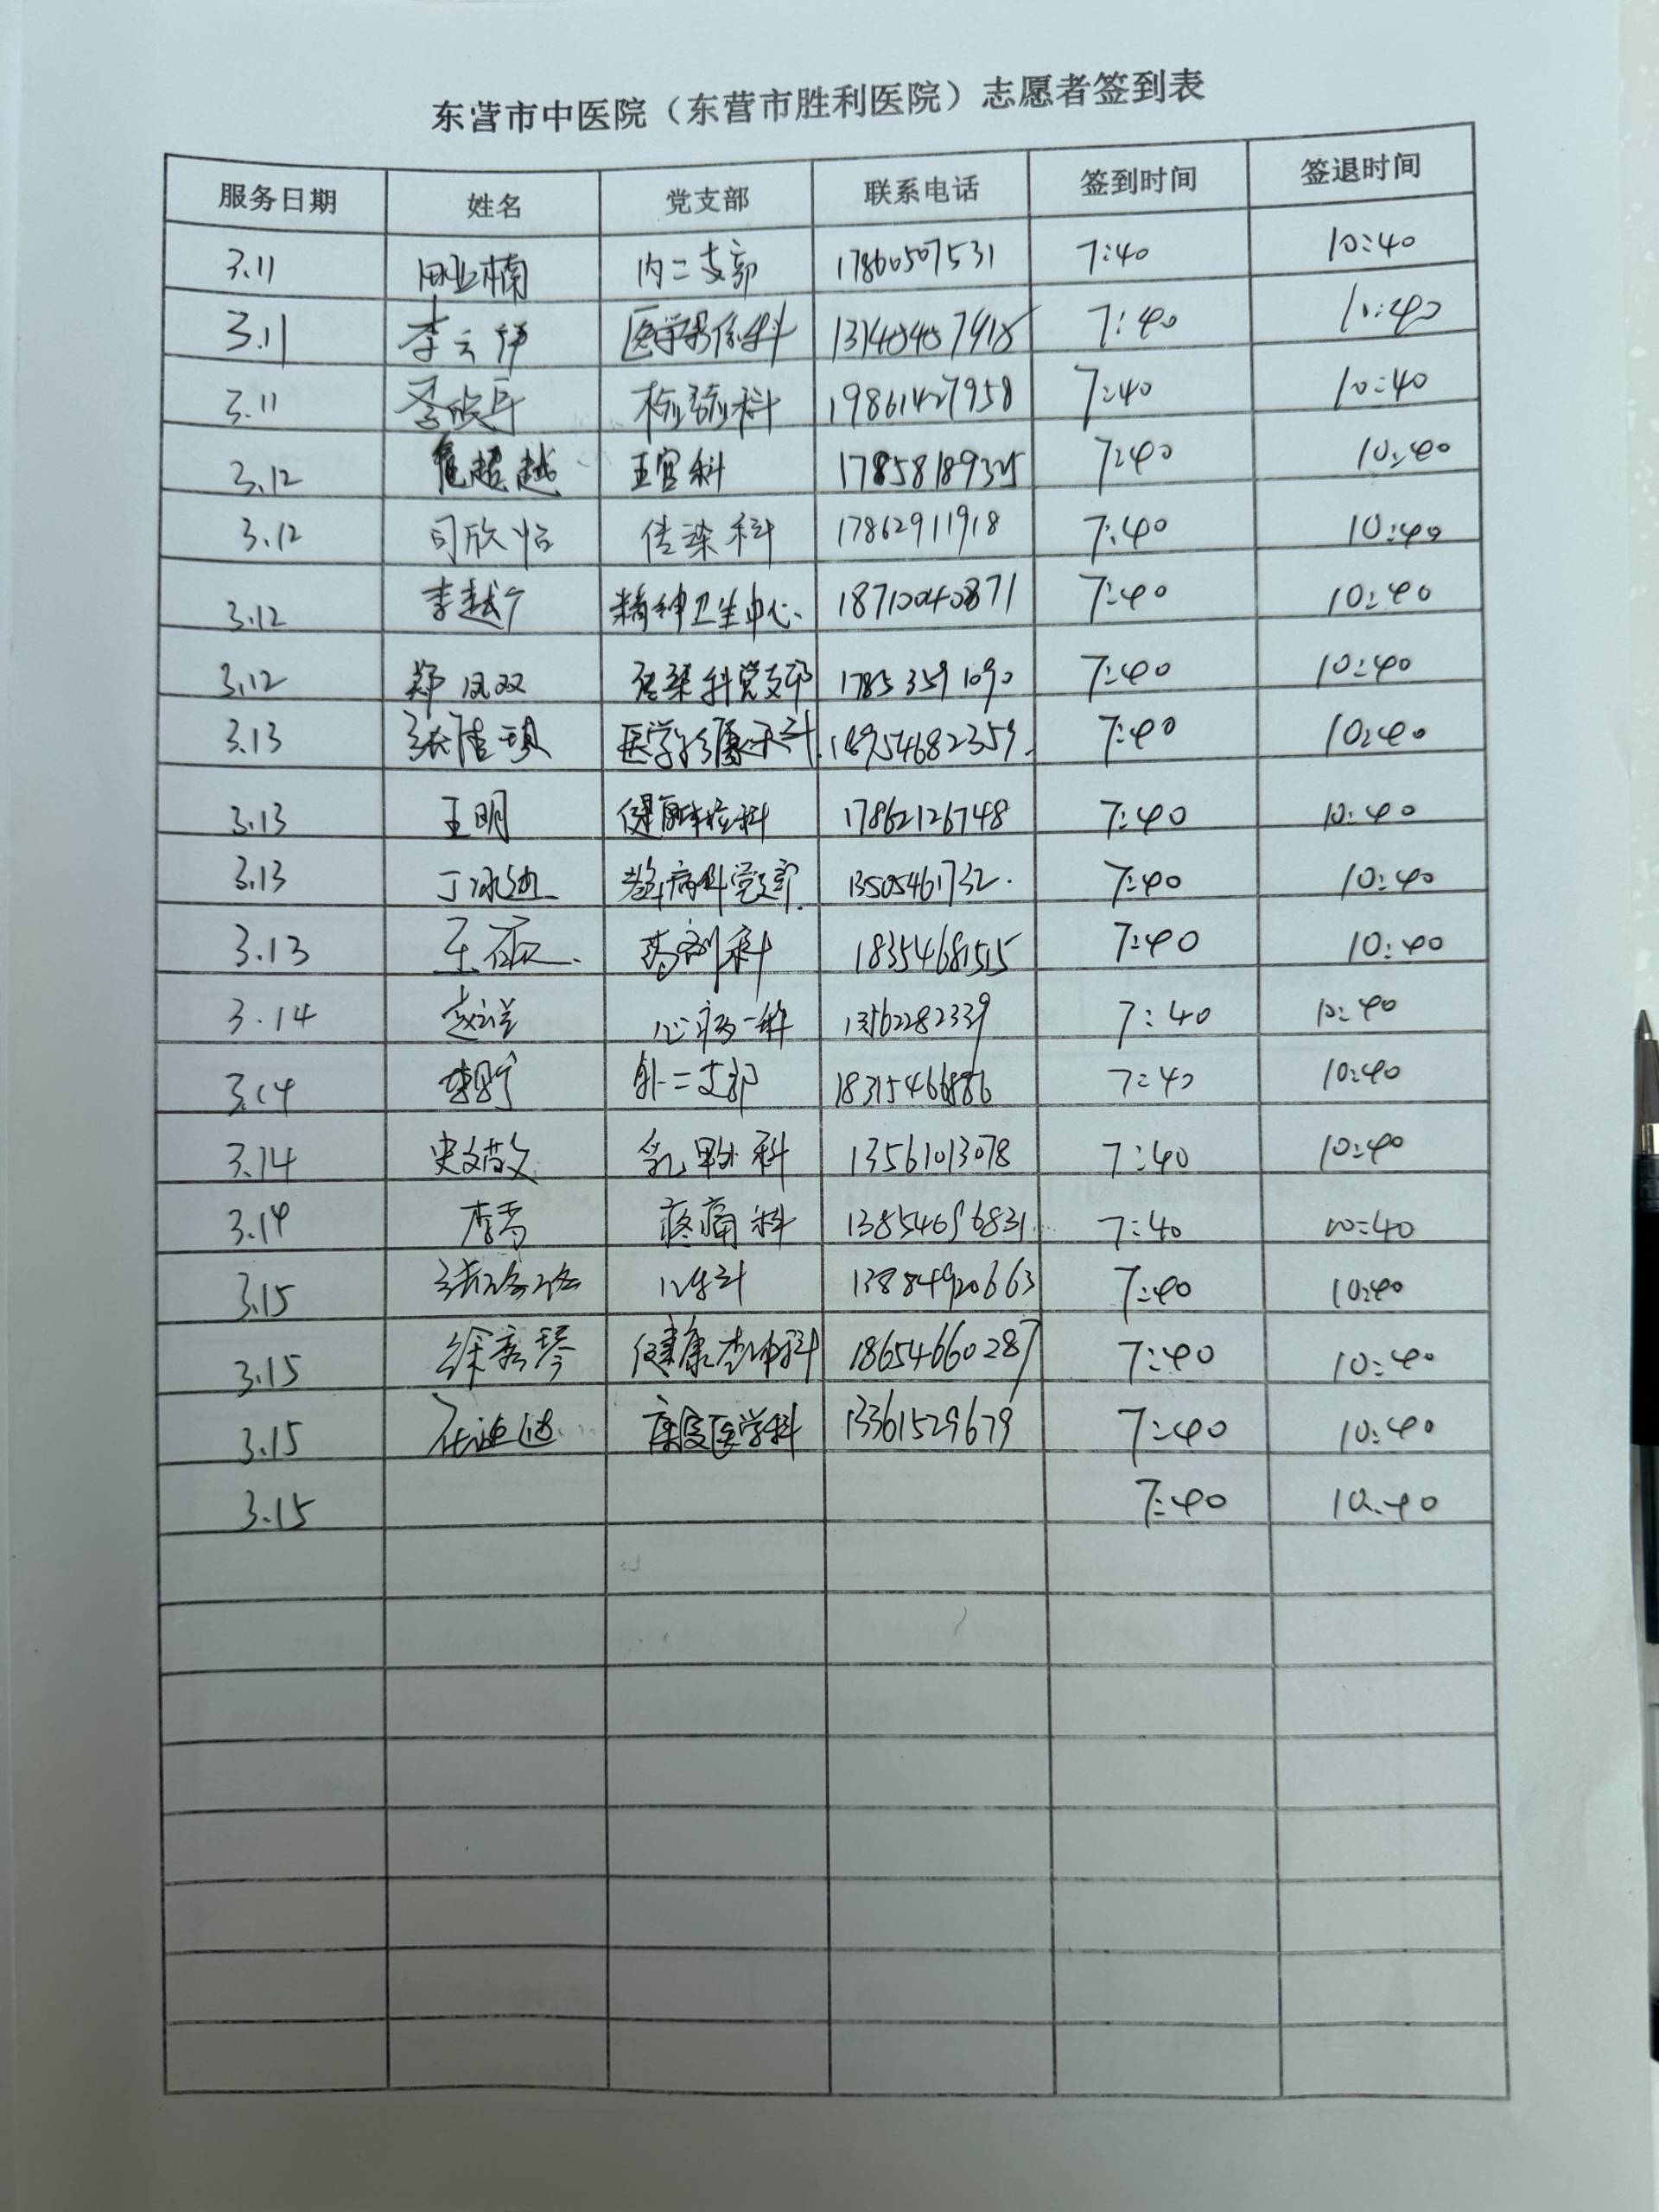 东营市中医院（东营市胜利医院）志愿者签到表
服务日期 姓名 党支部 联系电话 签到时间 签退时间
3.11 田亚楠 内二支部 17860507531 7:40 10:40
3.11 李云伟 医学影像科 7:40 10:40
3.11 检验科 19861427958 7:40 10:40
3.12 超越 科 17858189325 7:40 10:40
3.12 司欣怡 传染科 17862911918 7:40 10:40
3.12 李越宁 精神卫生中心 18710040871 7:40 10:40
3.12 郑凤双 传染科党支部 17853591090 7:40 10:40
3.13 张佳琪 18954682359 7:40 10:40
3.13 王明 健康体检科 17862126748 7:40 10:40
3.13 丁冰 病科党支部 13505461732 7:40 10:40
3.13 药剂科 18354681515 7:40 10:40
3.14 赵 心病一科 13562282339 7:40 10:40
3.14 外二支部 18315466886 7:40 10:40
3.14 史 乳甲外科 13561013078 7:40 10:40
3.14 李 疼痛科 13854696831 7:40 10:40
3.15 张 儿科 13884920663 7:40 10:40
3.15 徐 琴 健康 科 18654660287 7:40 10:40
3.15 康复医学科 13361529679 7:40 10:40
3.15 7:40 10:40